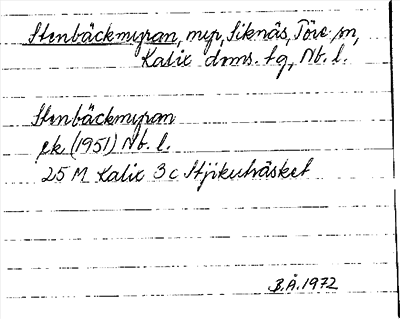 Stenbäckmyran, myr, Siknäs, Töre sn,
Kalix doms. tg, Nb. l.
Stenbäckmyran
ek. (1951) Nb. l.
25 M Kalix 3 c Stjikuträsket
B.Å. 1972